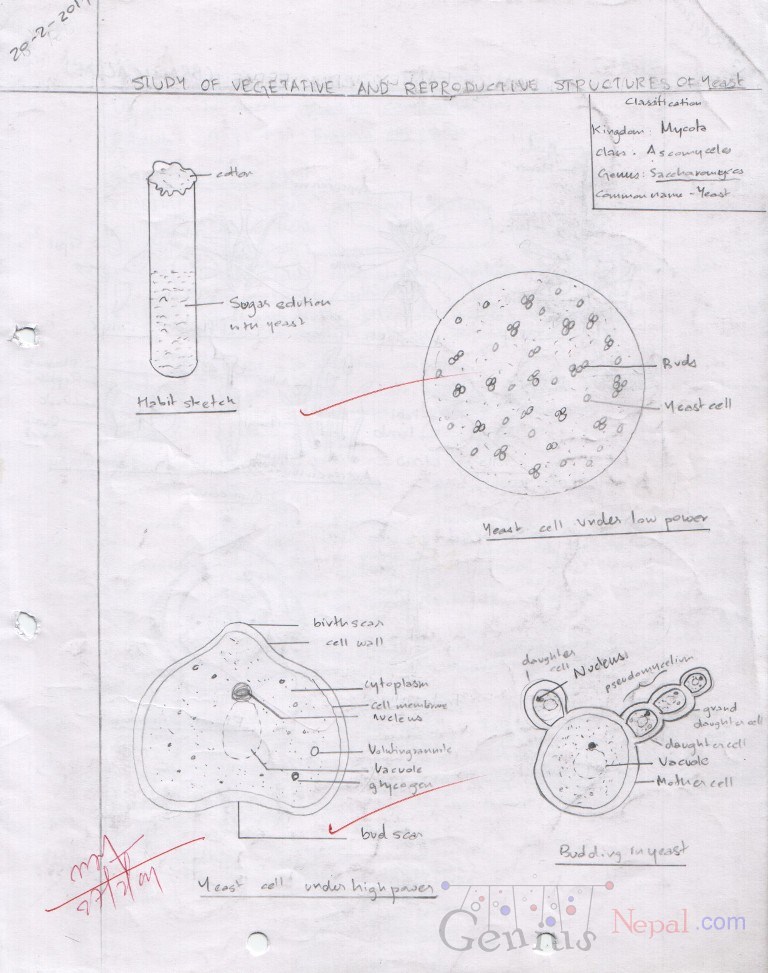 STUDY OF VEGETATIVE AND REPRODUCTIVE STRUCTURES OF Yeast
Classification
Kingdom: Mycota
Class. Ascomycetes
Genus: Saccharomyces
Common name - Yeast
cotton
Sugar solution
with yeast
Habit sketch
Buds
Yeast cell
Yeast cell under low power
birth scar
cell wall
cytoplasm
cell membrane
nucleus
Volutin granule
Vacuole
glycogen
bud scar
Yeast cell under high power
daughter
cell
Nucleus
pseudomycelium
grand
daughter cell
daughter cell
Vacuole
Mother cell
Budding in yeast
Genius Nepal.com